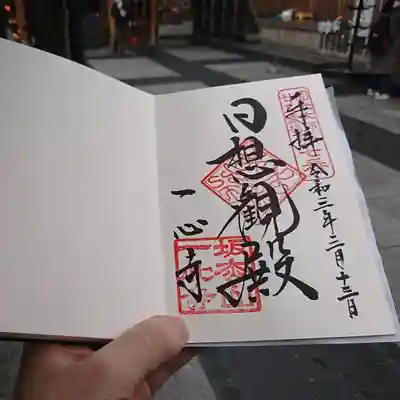 奉拝
令和三年二月十三日
日想観殿
一心寺